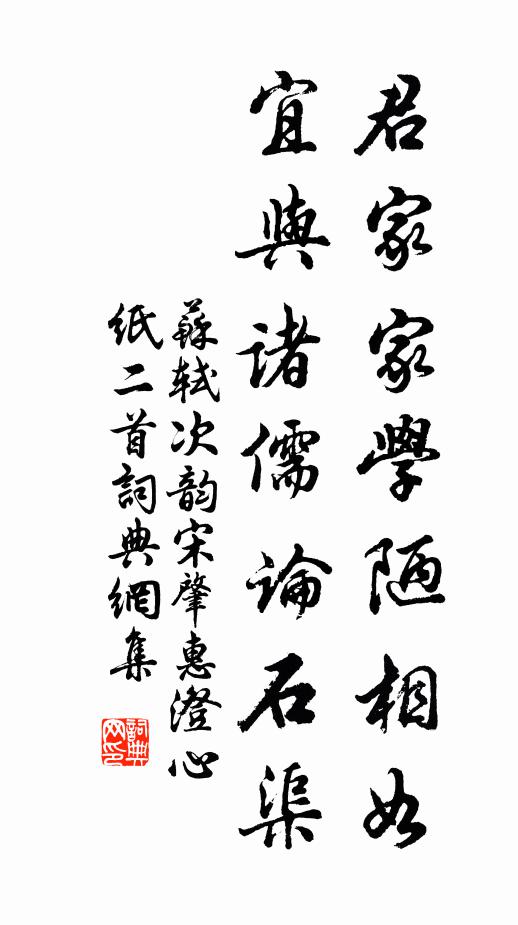 君家家學陋相如
宜與諸儒論石渠
蘇軾次韵宋肇惠澄心
紙二首詞典網集
詞典網印